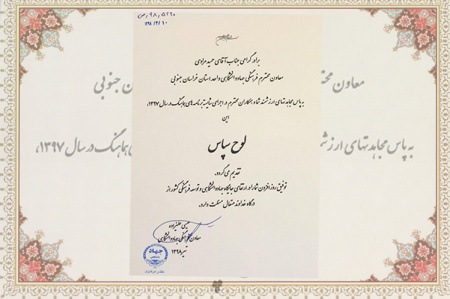 ص/۹۸/۵۲۹۰
۱۳۹۸/۴/۱۰
برادر گرامی جناب آقای حمید مرادی
معاون محترم فرهنگی جهاددانشگاهی واحد استان خراسان جنوبی
به پاس مجاهدتهای ارزشمند شما و همکاران محترم در اجرای شایسته برنامه های هماهنگ در سال ۱۳۹۷،
این
لوح سپاس
تقدیم می گردد.
توفیق روزافزون شما را در ارتقای جایگاه جهاددانشگاهی و توسعه فرهنگی کشور از
درگاه خداوند متعال مسئلت دارد.
عیسی علیزاده
معاون فرهنگی جهاددانشگاهی
تیر ۱۳۹۸
جهاد
معاون مح
ان جنوبی
به پاس مجاهدتهای ارز
ی هماهنگ در سال ۱۳۹۷،